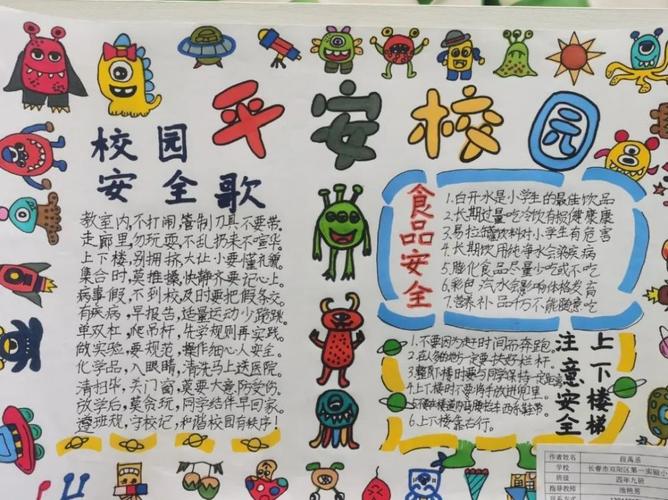 平安校园
校园
安全歌
教室内,不打闹,管制刀具不要带。
走廊里,勿玩耍,不乱扔来不喧华。
上下楼,别拥挤,大让小要懂礼貌
集合时,莫推搡,快静齐要记心上。
病事假,不到校,及时要把假条交。
有疾病,早报告,适量运动少跑跳。
单双杠,爬吊杆,先学规则再实践。
做实验,要规范,操作细心人安全。
化学品,入眼睛,清洗马上送医院
清扫毕,关门窗,莫要大意防受伤。
放学后,莫贪玩,同学结伴早回家。
遵班规,守校记,和谐校园有秩序!
食品安全
1.白开水是小学生的最佳饮品
2.长期过量吃冷饮有损健康
3.易拉罐饮料对小学生有危害
4.长期饮用纯净水会染疾病
5.膨化食品尽量少吃或不吃
6.彩色汽水会影响体格发育
7.营养补品千万不能随意吃
上下楼梯
注意安全
1.不要因为赶时间而奔跑。
2.在人多的地方一定要扶好栏杆。
3.整队下楼时要与同学保持一定距离
4.上下楼时不要将手放进兜里
6.上下楼靠右行。
作者姓名
学校 长春市双阳区第一实验小
班级 四年九班
指导教师